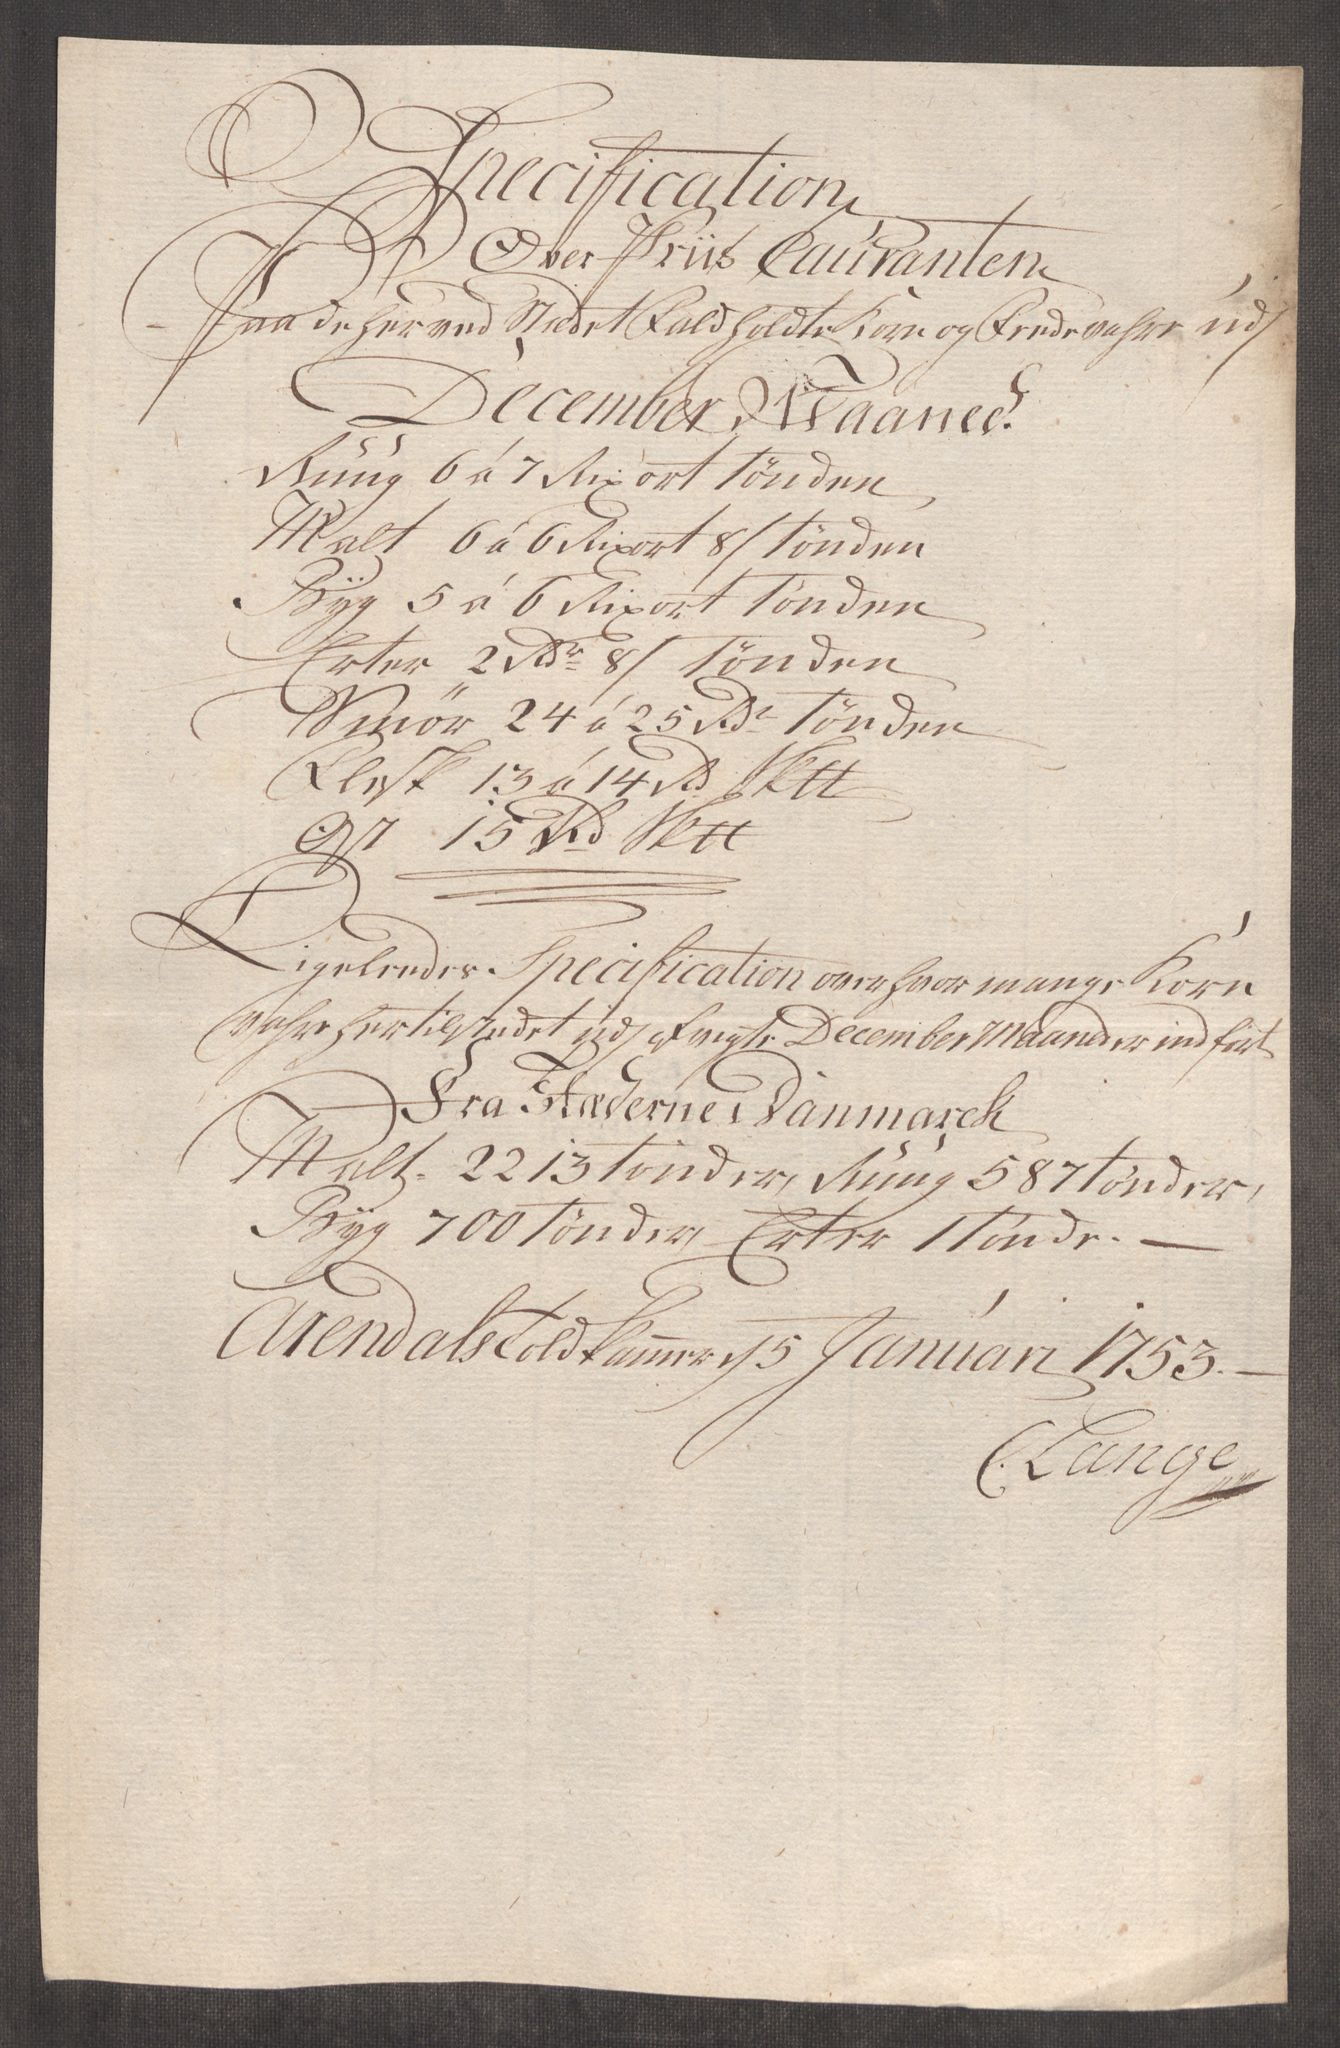 Specification
Over Priis Couranten
Paa de her ved Stædet Fald holdte Korn og Fede vahre udj
December Maaned.
Rüüg 6 á 7 Rixort Tönden
Malt 6 á 6 Rixort 8 s Tönden
Byg 5 á 6 Rixort Tönden
Erter 2 Rdr 8 s Tönden
Smör 24 á 25 Rdr Tönden
Flesk 13 á 14 Rd Sk℔
Ost 15 Rd Sk℔
Ligeleedes Specification over hvor mange Korn
vahre her til Stædet udj December Maaneder ind fört
Fra Stæderne i Danmarck
Malt 2213 Tönder, Rüüg 587 Tönder,
Byg 700 Tönder, Erter 1 Tönde. —
Arendals Told Kammer d 5 Januari 1753. —
C. Lange